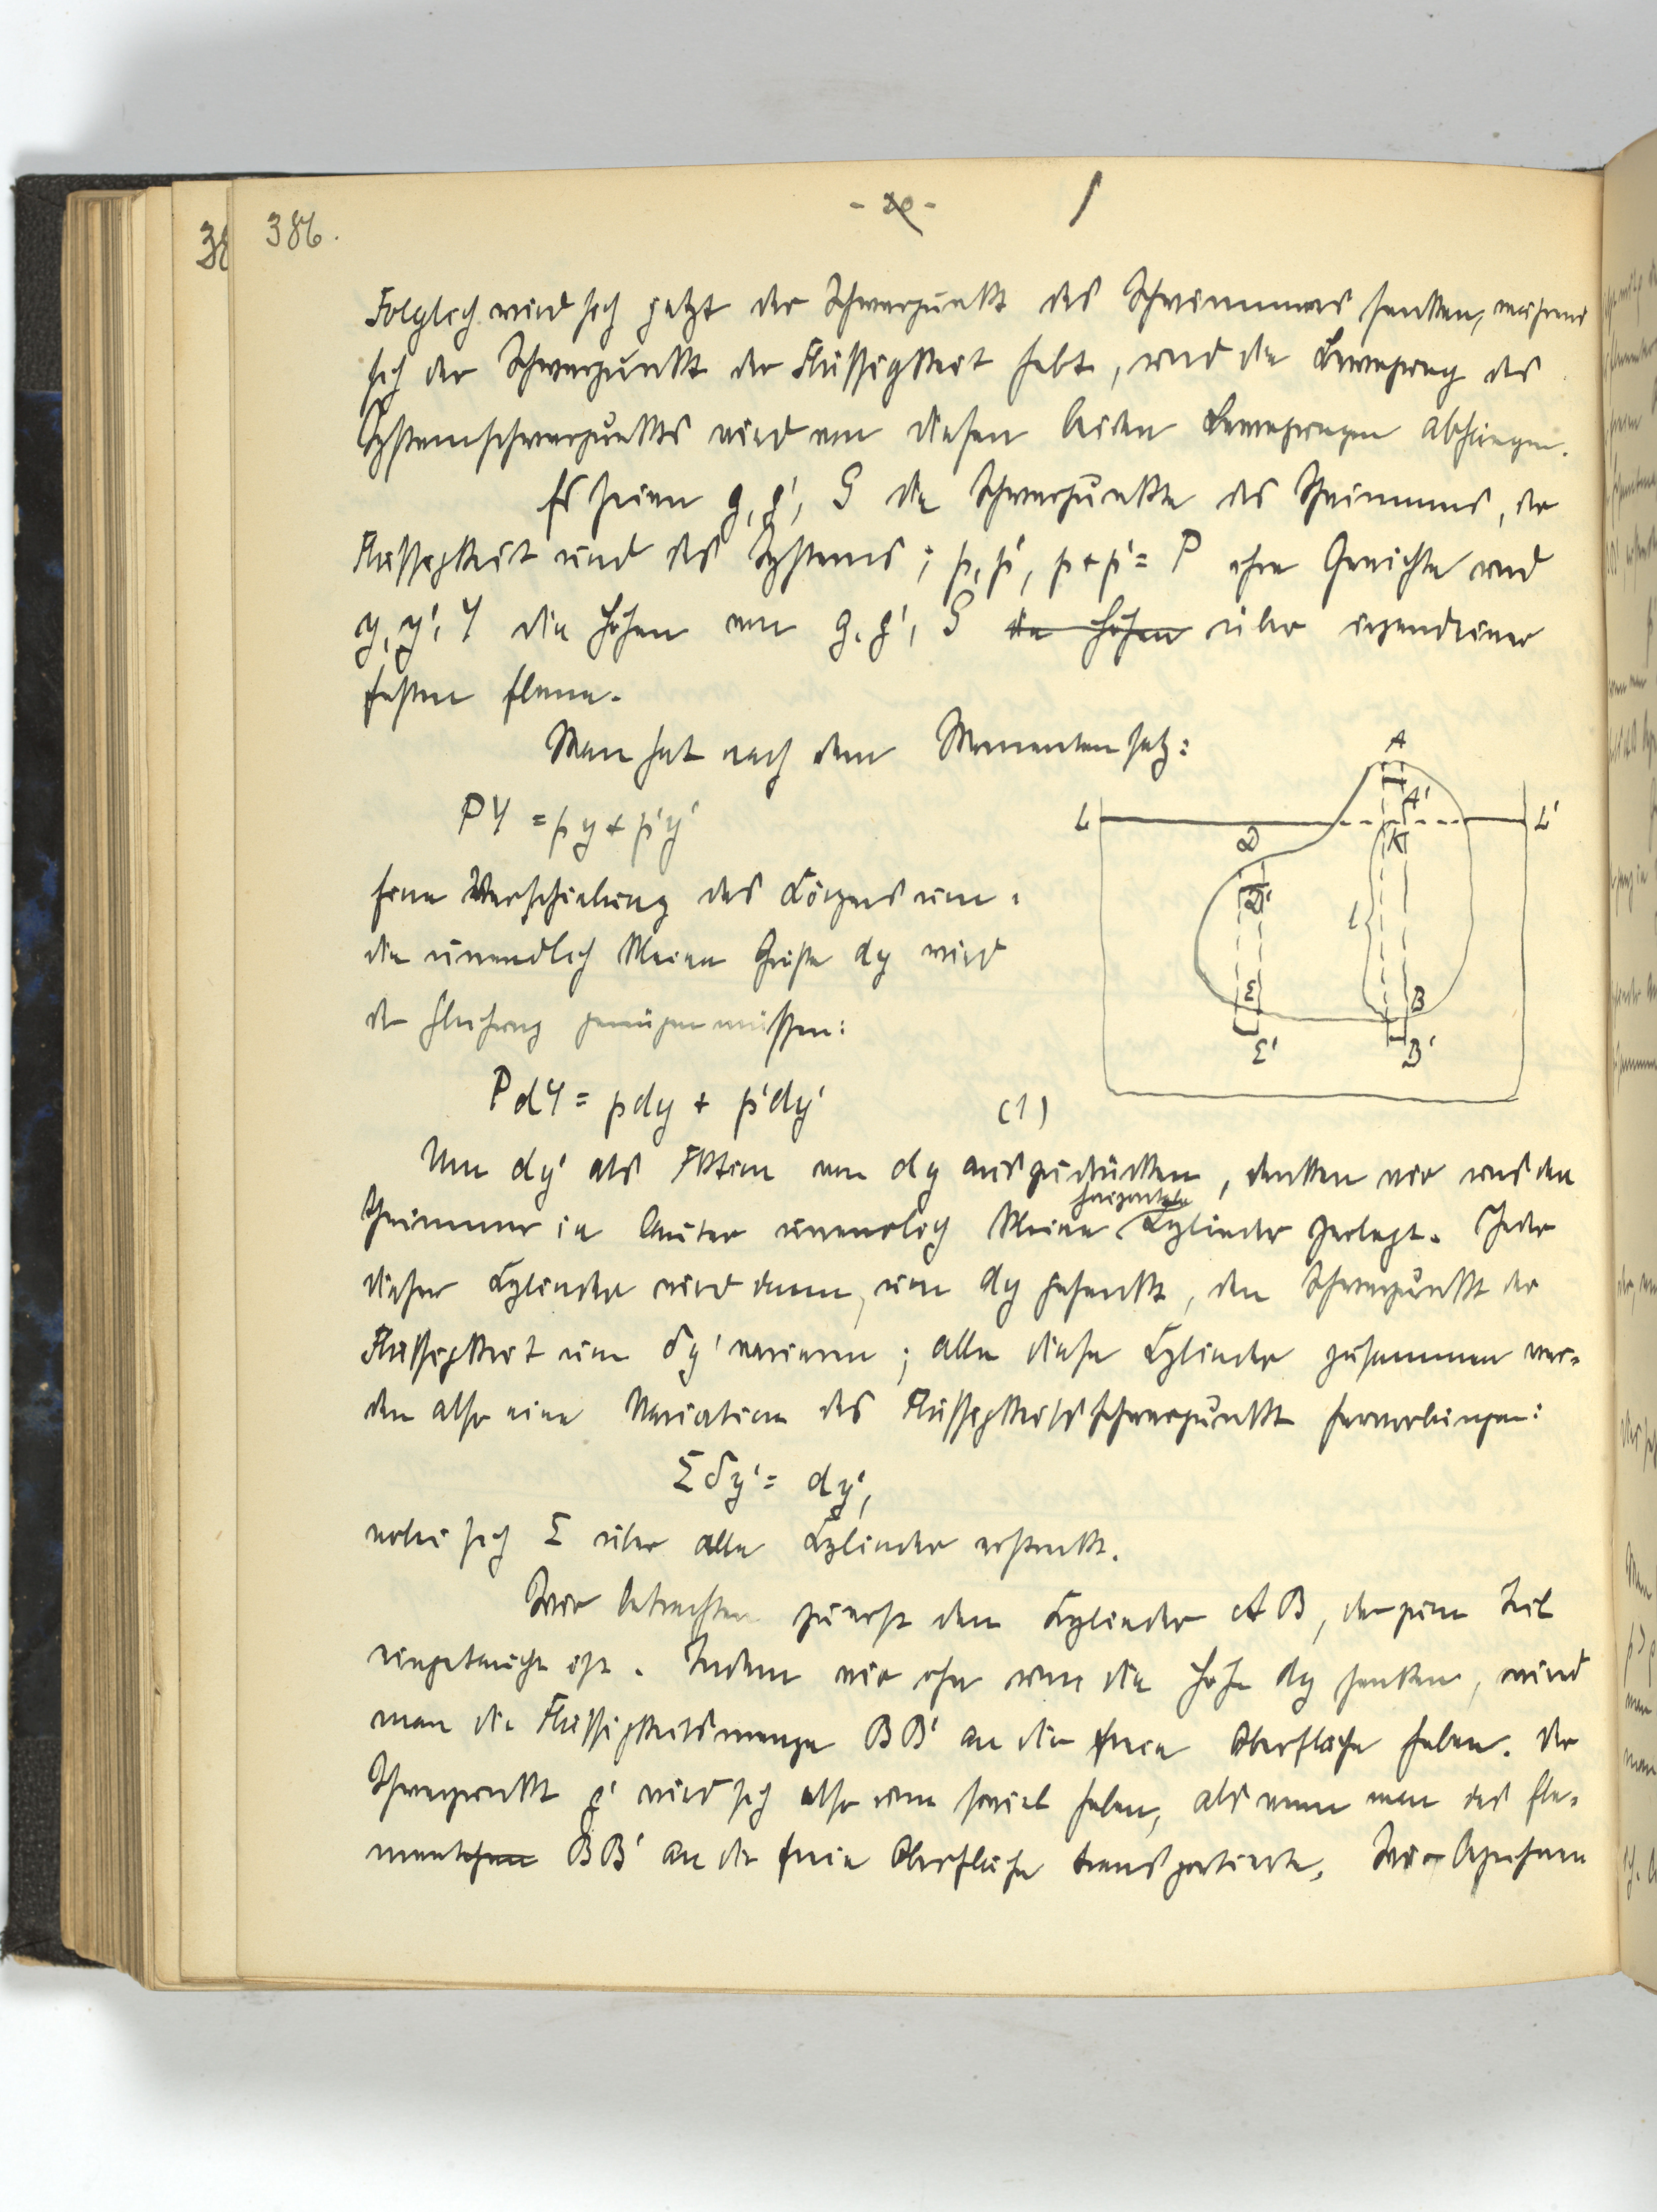 386.
- 20 -
Folglich wird sich jetzt der Schwerpunkt des Schwimmers senken, während
sich der Schwerpunkt der Flüssigkeit hebt, und die Bewegung des
Systemschwerpunktes wird von diesen beiden Bewegungen abhängen.
Es seien g, g', G die Schwerpunkte des Schwimmers, der
Flüssigkeit und des Systems; p, p', p+p' = P ihre Gewichte und
y, y', Y die Höhen von g, g', G die Höhen über irgendeiner
festen Ebene.
Man hat nach dem Momentensatz:
PY = py + p'y'
Eine Verschiebung des Körpers um
die unendlich kleine Größe dy wird
der Gleichung genügen müssen:
PdY = pdy + p'dy' (1)
A
A'
L
L'
D
K
D'
l
E
B
E'
B'
Um dy' als Fktion von dy auszudrücken, denken wir uns den
horizontale
Schwimmer in lauter unendlich kleine Zylinder zerlegt. Jeder
dieser Zylinder wird dann, um dy gesenkt, den Schwerpunkt der
Flüssigkeit um δy' variieren; alle diese Zylinder zusammen wer-
den also eine Variation des Flüssigkeitsschwerpunkts hervorbringen:
Σδy' = dy',
wobei sich Σ über alle Zylinder erstreckt.
Wir betrachten zuerst den Zylinder AB, der zum Teil
eingetaucht ist. Indem wir ihn um die Höhe dy senken, wird
man die Flüssigkeitsmenge BB' an die freie Oberfläche heben. Der
Schwerpunkt g' wird sich also um soviel heben, als wenn man das Ele-
mentchen BB' an die freie Oberfläche transportierte. Wir bezeichnen